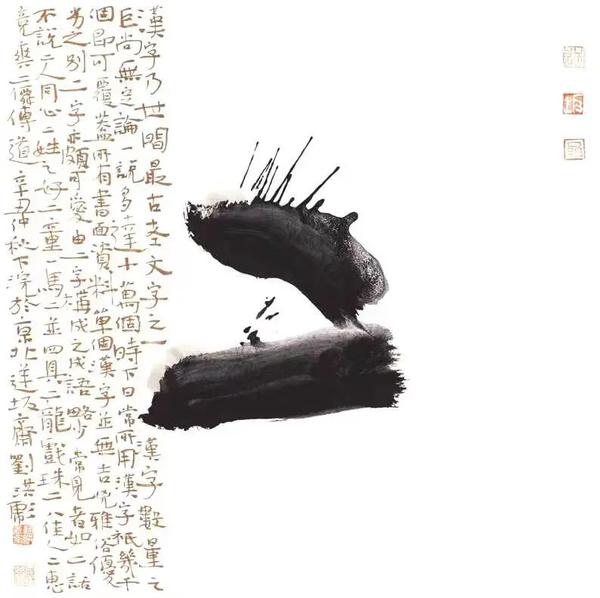 二
漢字乃世間最古老文字之一漢字數量之
巨尚無定論一說多達十萬個時下日常所用漢字祇幾千
個即可覆蓋所有書面資料單個漢字並無吉兇雅俗優
劣之別二字亦頗可愛由二字構成之成語略少常見者如二話
不說二人同心二姓之好二童一馬二並四具二龍戲珠二八佳人二惠
競爽二僧傳道辛丑仲秋下浣於京北逆坂齋劉洪彪